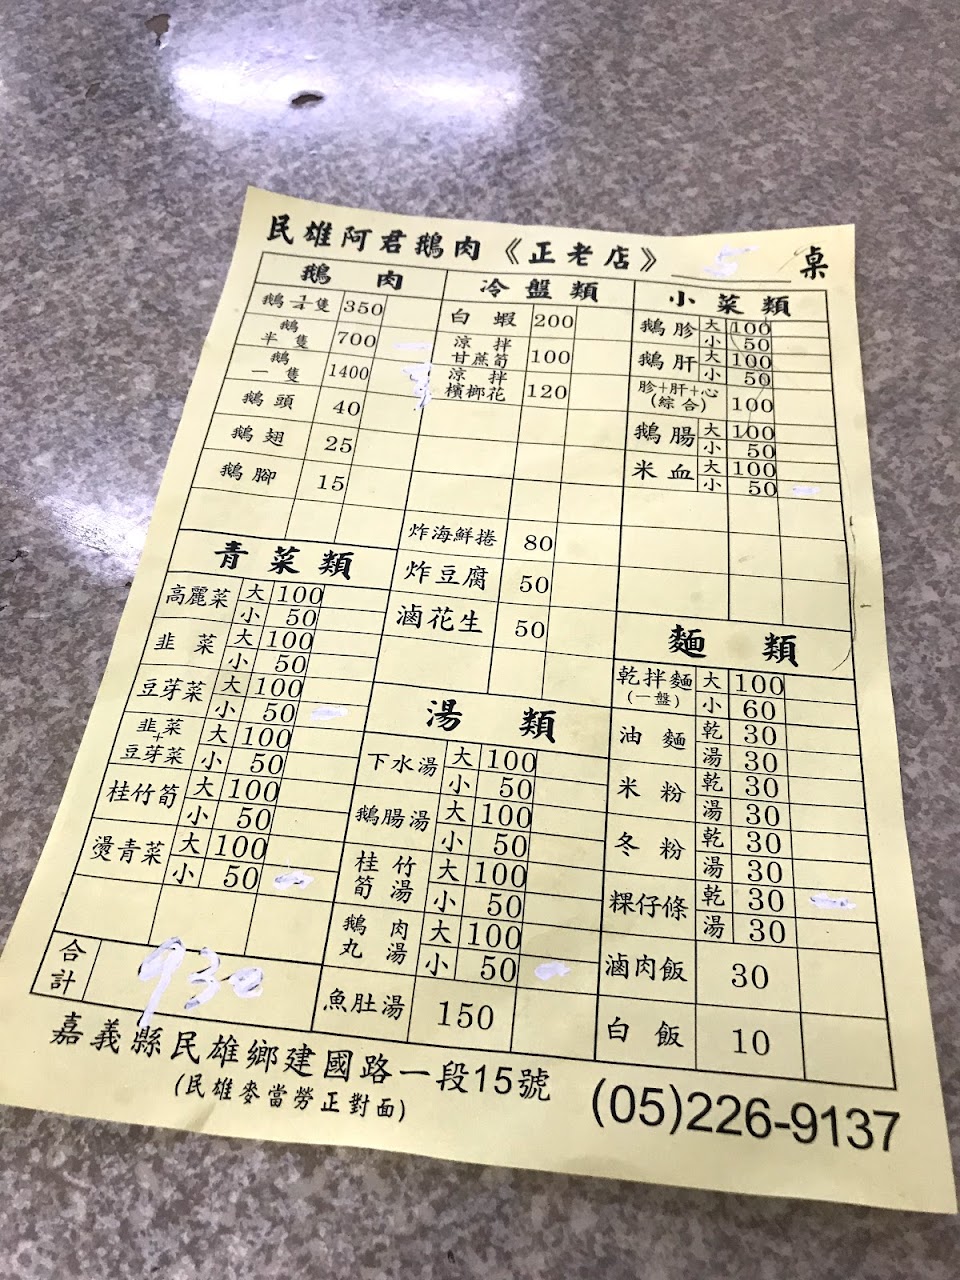 民雄阿君鵝肉《正老店》 5 桌
鵝肉
鵝 1/4隻 350
鵝半隻 700 一
鵝一隻 1400
鵝頭 40
鵝翅 25
鵝腳 15
冷盤類
白蝦 200
涼拌甘蔗筍 100
涼拌檳榔花 120
炸海鮮捲 80
炸豆腐 50
滷花生 50
小菜類
鵝胗 大 100
小 50
鵝肝 大 100
小 50
胗+肝+心(綜合) 100
鵝腸 大 100
小 50
米血 大 100
小 50 一
青菜類
高麗菜 大 100
小 50
韭菜 大 100
小 50
豆芽菜 大 100
小 50 一
韭菜+豆芽菜 大 100
小 50
桂竹筍 大 100
小 50
燙青菜 大 100
小 50 一
湯類
下水湯 大 100
小 50
鵝腸湯 大 100
小 50
桂竹筍湯 大 100
小 50
鵝肉丸湯 大 100
小 50 一
魚肚湯 150
麵類
乾拌麵(一盤) 大 100
小 60
油麵 乾 30
湯 30
米粉 乾 30
湯 30
冬粉 乾 30
湯 30
粿仔條 乾 30 一
湯 30
滷肉飯 30
白飯 10
合計 930
嘉義縣民雄鄉建國路一段15號 (05)226-9137
(民雄麥當勞正對面)